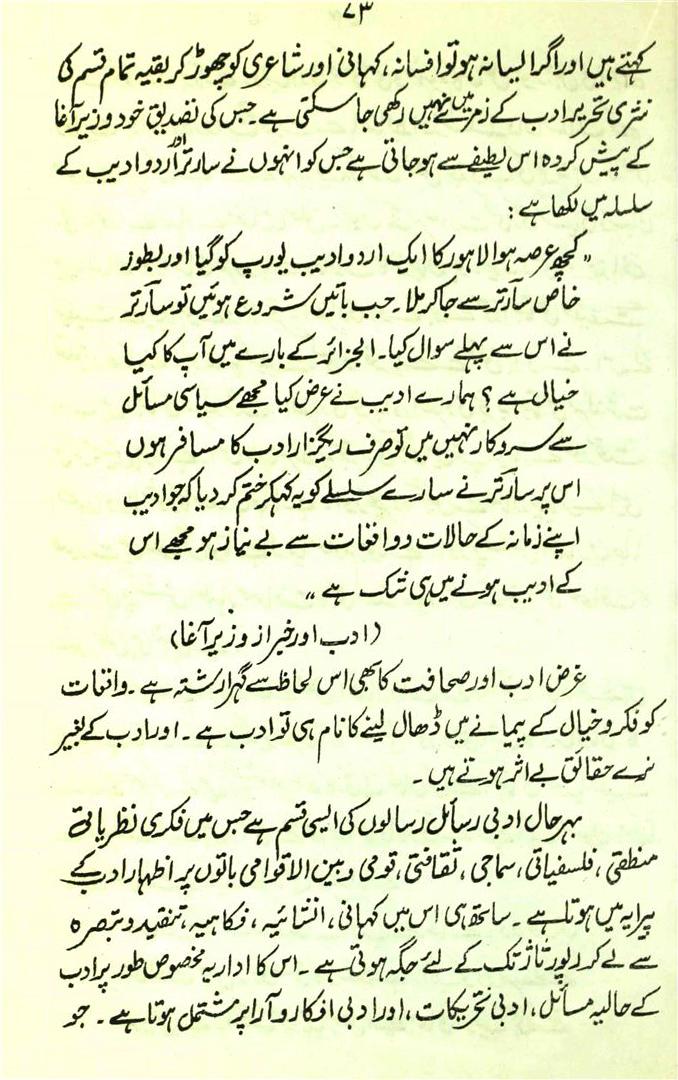 ۷۳
کہتے ہیں اور اگر ایسا نہ ہو تو افسانہ، کہانی اور شاعری کو چھوڑ کر بقیہ تمام قسم کی
نثری تحریر ادب کے زمرے میں نہیں رکھی جا سکتی ہے۔ جس کی تصدیق خود وزیر آغا
کے پیش کردہ اس لطیفے سے ہو جاتی ہے جس کو انہوں نے سارتر اور اردو ادیب کے
سلسلہ میں لکھا ہے :
"کچھ عرصہ ہوا لاہور کا ایک اردو ادیب یورپ کو گیا اور بطور
خاص سارتر سے جا کر ملا۔ جب باتیں شروع ہوئیں تو سارتر
نے اس سے پہلے سوال کیا۔ الجزائر کے بارے میں آپ کا کیا
خیال ہے ؟ ہمارے ادیب نے عرض کیا مجھے سیاسی مسائل
سے سروکار نہیں میں تو صرف ریگزار ادب کا مسافر ہوں
اس پر سارتر نے سارے سلسلے کو یہ کہکر ختم کر دیا کہ جو ادیب
اپنے زمانہ کے حالات و واقعات سے بے نیاز ہو مجھے اس
کے ادیب ہونے میں ہی شک ہے"
(ادب اور خبر از وزیر آغا)
غرض ادب اور صحافت کا بھی اس لحاظ سے گہرا رشتہ ہے۔ واقعات
کو فکر و خیال کے پیمانے میں ڈھال لینے کا نام ہی تو ادب ہے۔ اور ادب کے بغیر
نرے حقائق بے اثر ہوتے ہیں۔
بہرحال ادبی رسائل رسالوں کی ایسی قسم ہے جس میں فکری نظریاتی
منطقی، فلسفیاتی، سماجی، ثقافتی، قومی و بین الاقوامی باتوں پر اظہار ادب کے
پیرایہ میں ہوتا ہے۔ ساتھ ہی اس میں کہانی، انشائیہ، فکاہیہ، تنقید و تبصرہ
سے لے کر رپورتاژ تک کے لئے جگہ ہوتی ہے۔ اس کا اداریہ مخصوص طور پر ادب
کے حالیہ مسائل، ادبی تحریکات، اور ادبی افکار و آرا پر مشتمل ہوتا ہے۔ جو